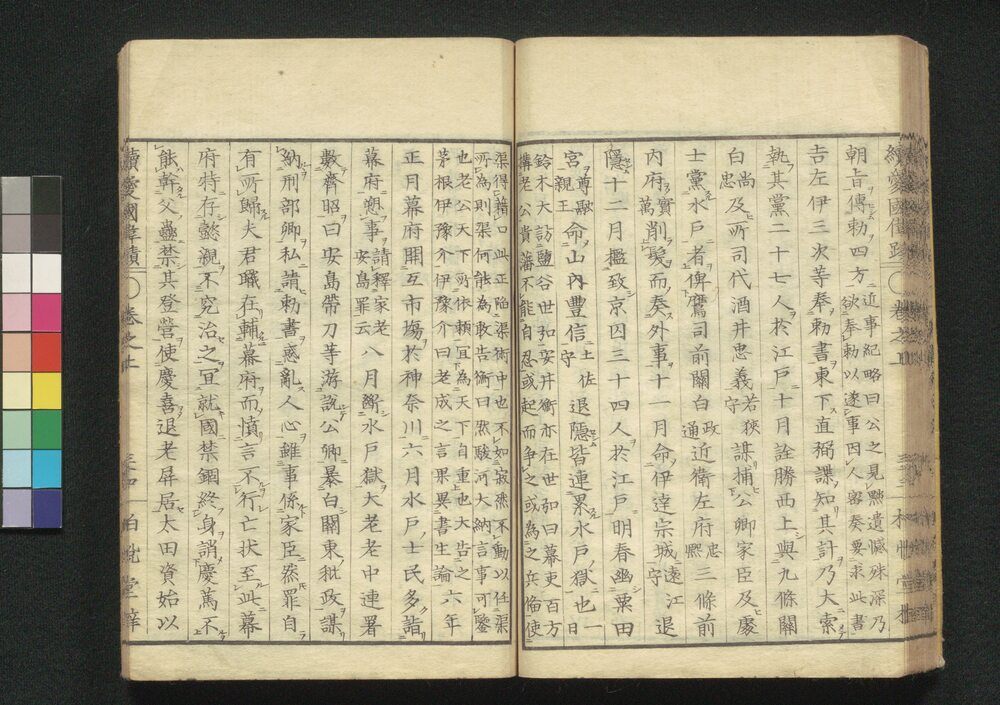 朝旨傳勅四方近事紀略曰公之見黜遺憾殊深乃欲奉勅以遂事因人密奏要求此書
吉左伊三次等奉勅書東下直弼諜知其計乃大索
執其黨二十七人於江戸十月詮勝西上與九條關
白尚忠及所司代酒井忠義若狹守謀捕公卿家臣及處
士黨水戸者俾鷹司前關白政通近衞左府忠熙三條前
内府實萬削髮而奏外事十一月命伊達宗城遠江守退
隱十二月檻致京囚三十四人於江戸明春幽粟田
宮尊融親王命山内豐信土佐守退隱皆連累水戸獄也一日
鈴木大訪鹽谷世弘安井衡亦在世弘曰幕吏百方
搆老公貴藩不能自忍或起而爭之或為之兵備使
渠得藉口此正陷渠術中也不如寂然不動以任渠
所為則渠何能為敢告衡曰然駿河大納言事可鑒
也老公天下所依頼宜為天下自重也大告之
茅根伊豫介伊豫介曰老成之言果異書生論六年
正月幕府開互市塲於神奈川六月水戸士民多詣
幕府愬事請釋家老安島罪云八月斷水戸獄大老老中連署
數齊昭曰安島帶刀等游説公卿暴白關東秕政謀
納刑部卿私請勅書惑亂人心雖事係家臣然罪自
有所歸夫君職在輔幕府而慎言不行亡状至此幕
府特存懿親不究治之宜就國禁錮終身誚慶篤不
能幹父蠱禁其登營使慶喜退老屏居太田資始以